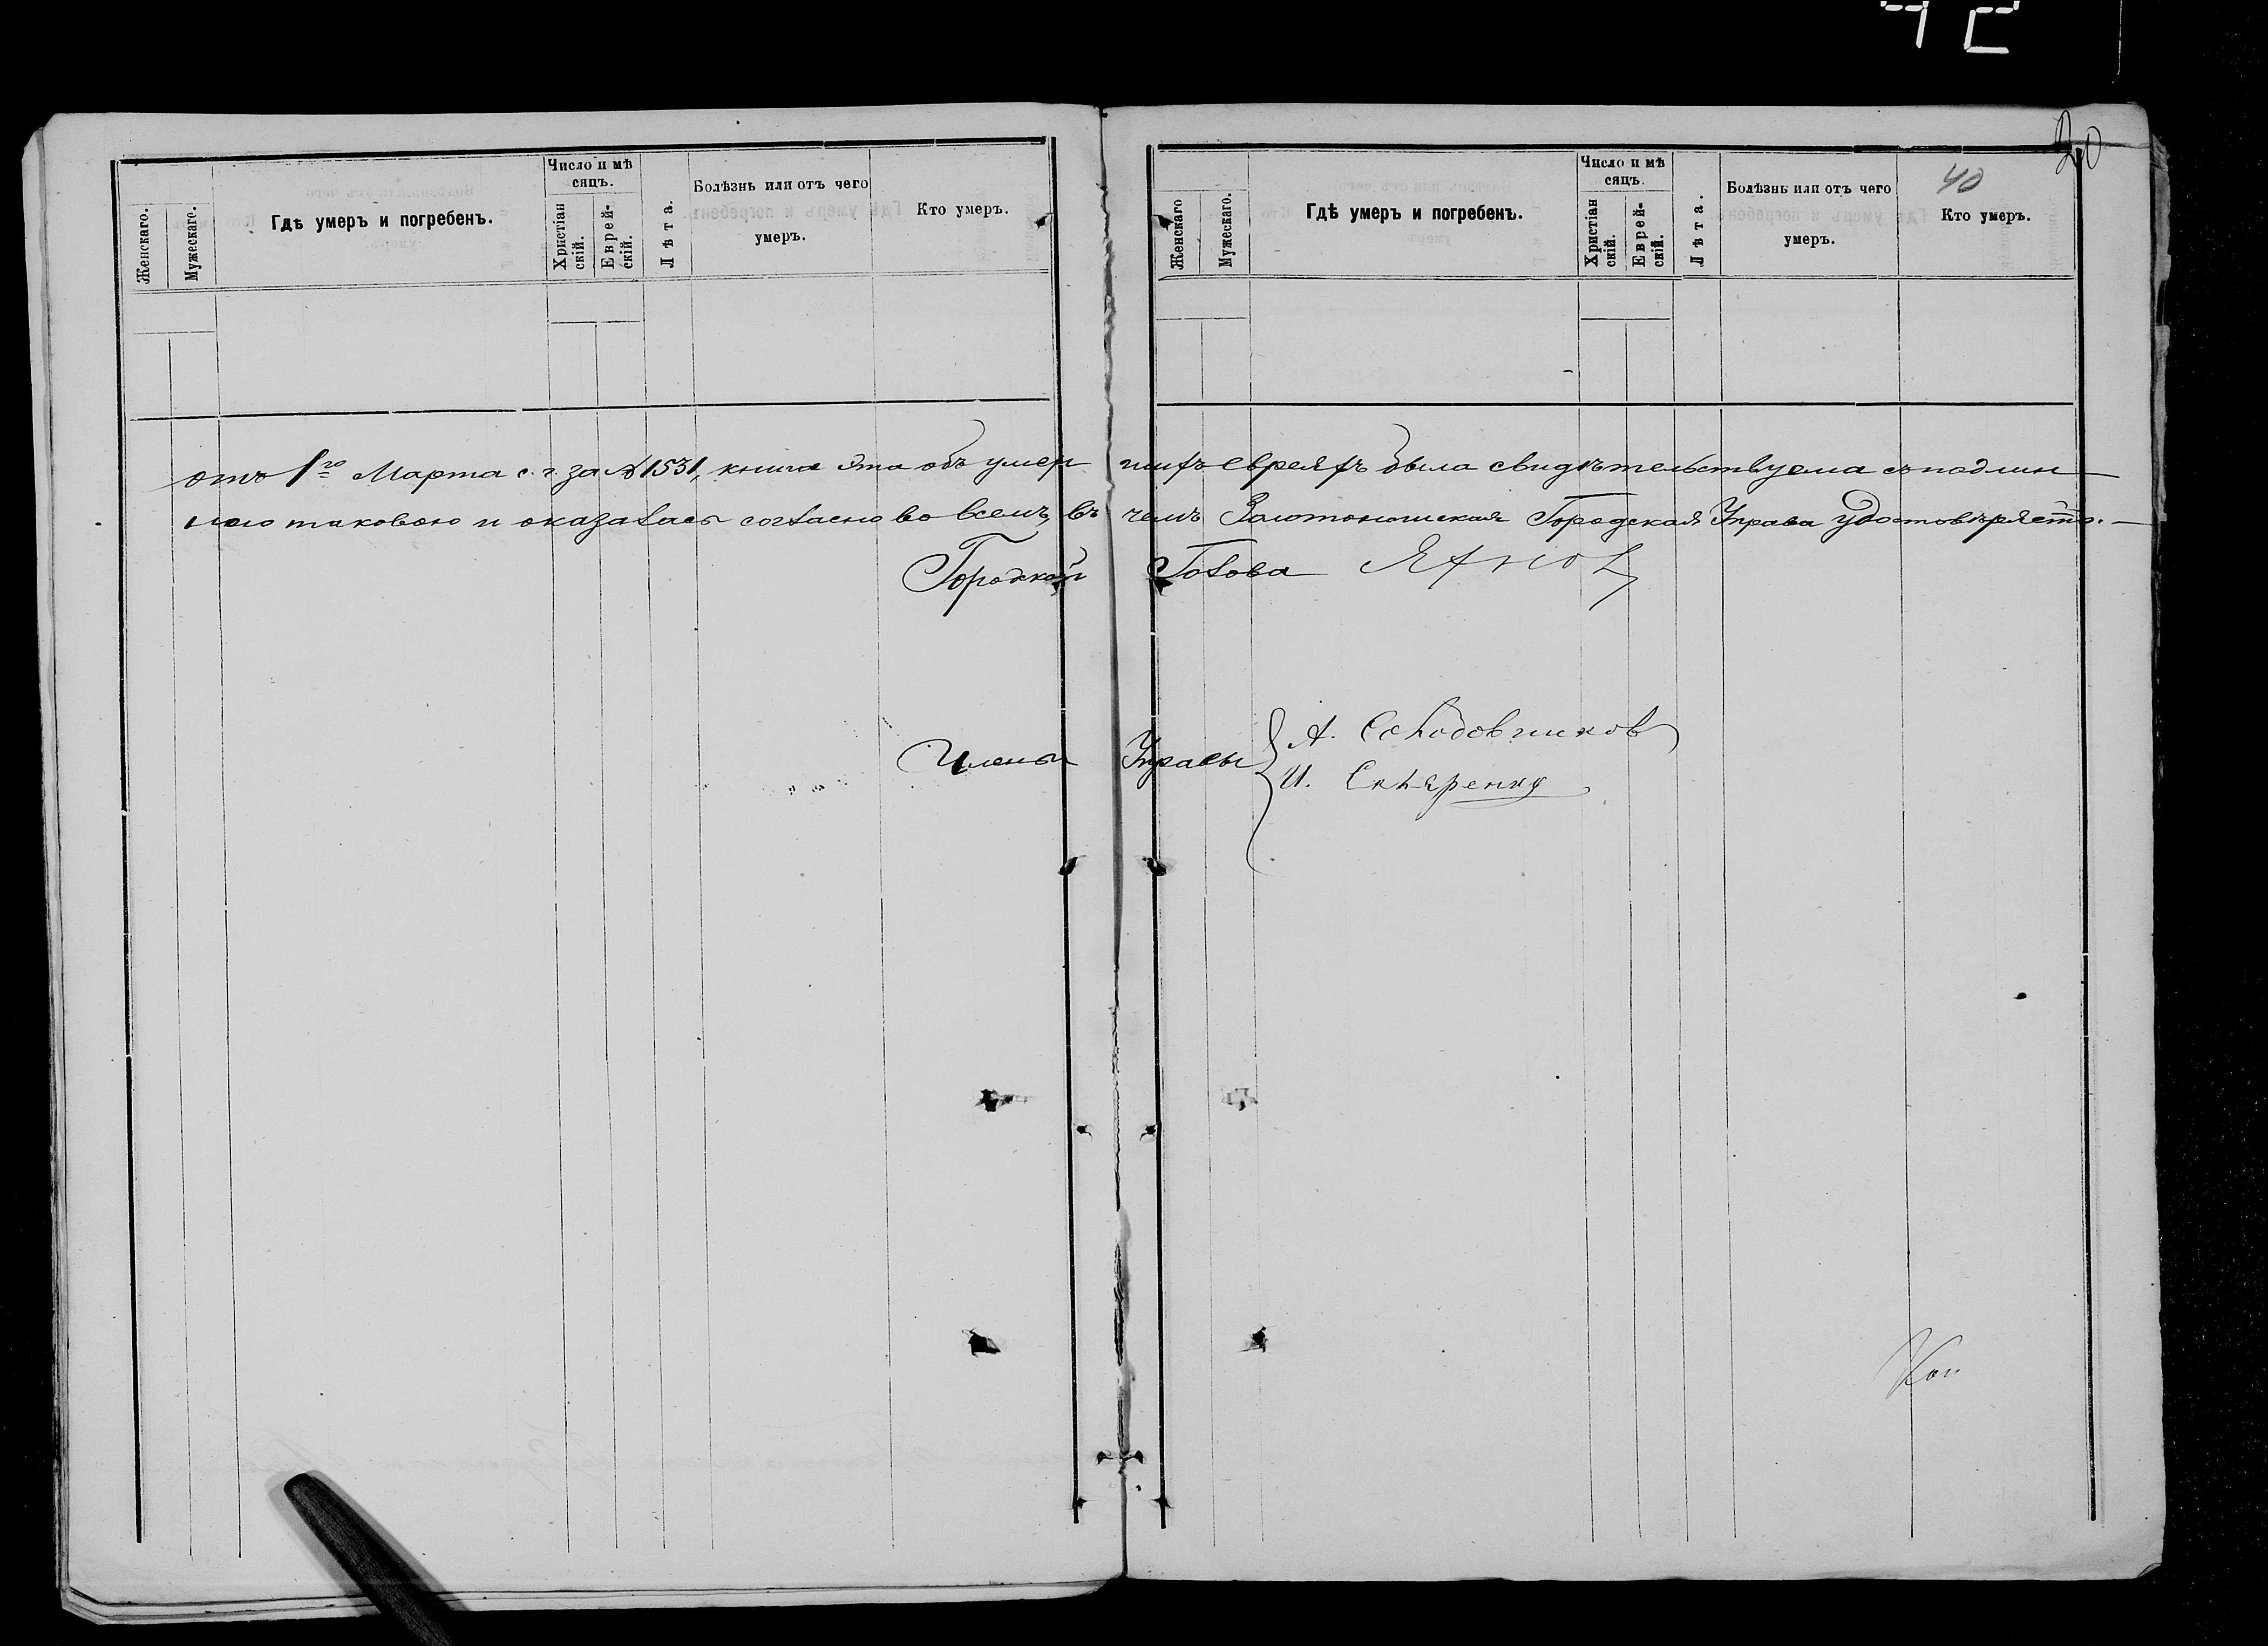 42
20
40
Женскаго.
Мужескаго.
Гдѣ умеръ и погребенъ.
Число и мѣ
сяцъ.
Христіан
скій.
Еврей-
скій.
Лѣта.
Болѣзнь или отъ чего
умеръ.
Кто умеръ.
Женскаго
Мужескаго.
Гдѣ умеръ и погребенъ.
Число и мѣ
сяцъ.
Христіан
скій.
Еврей-
скій.
Лѣта.
Болѣзнь или отъ чего
умеръ.
Кто умеръ.
отъ 1го Марта с. г. за № 1531, книга эта объ умер шихъ евреяхъ была свидѣтельствуема съ подлин
ною таковою и оказалась согласно во всемъ, въ чемъ Золотоношская Городская Управа удостовѣряетъ.
Городской Голова
Члены Управы
А.
И.